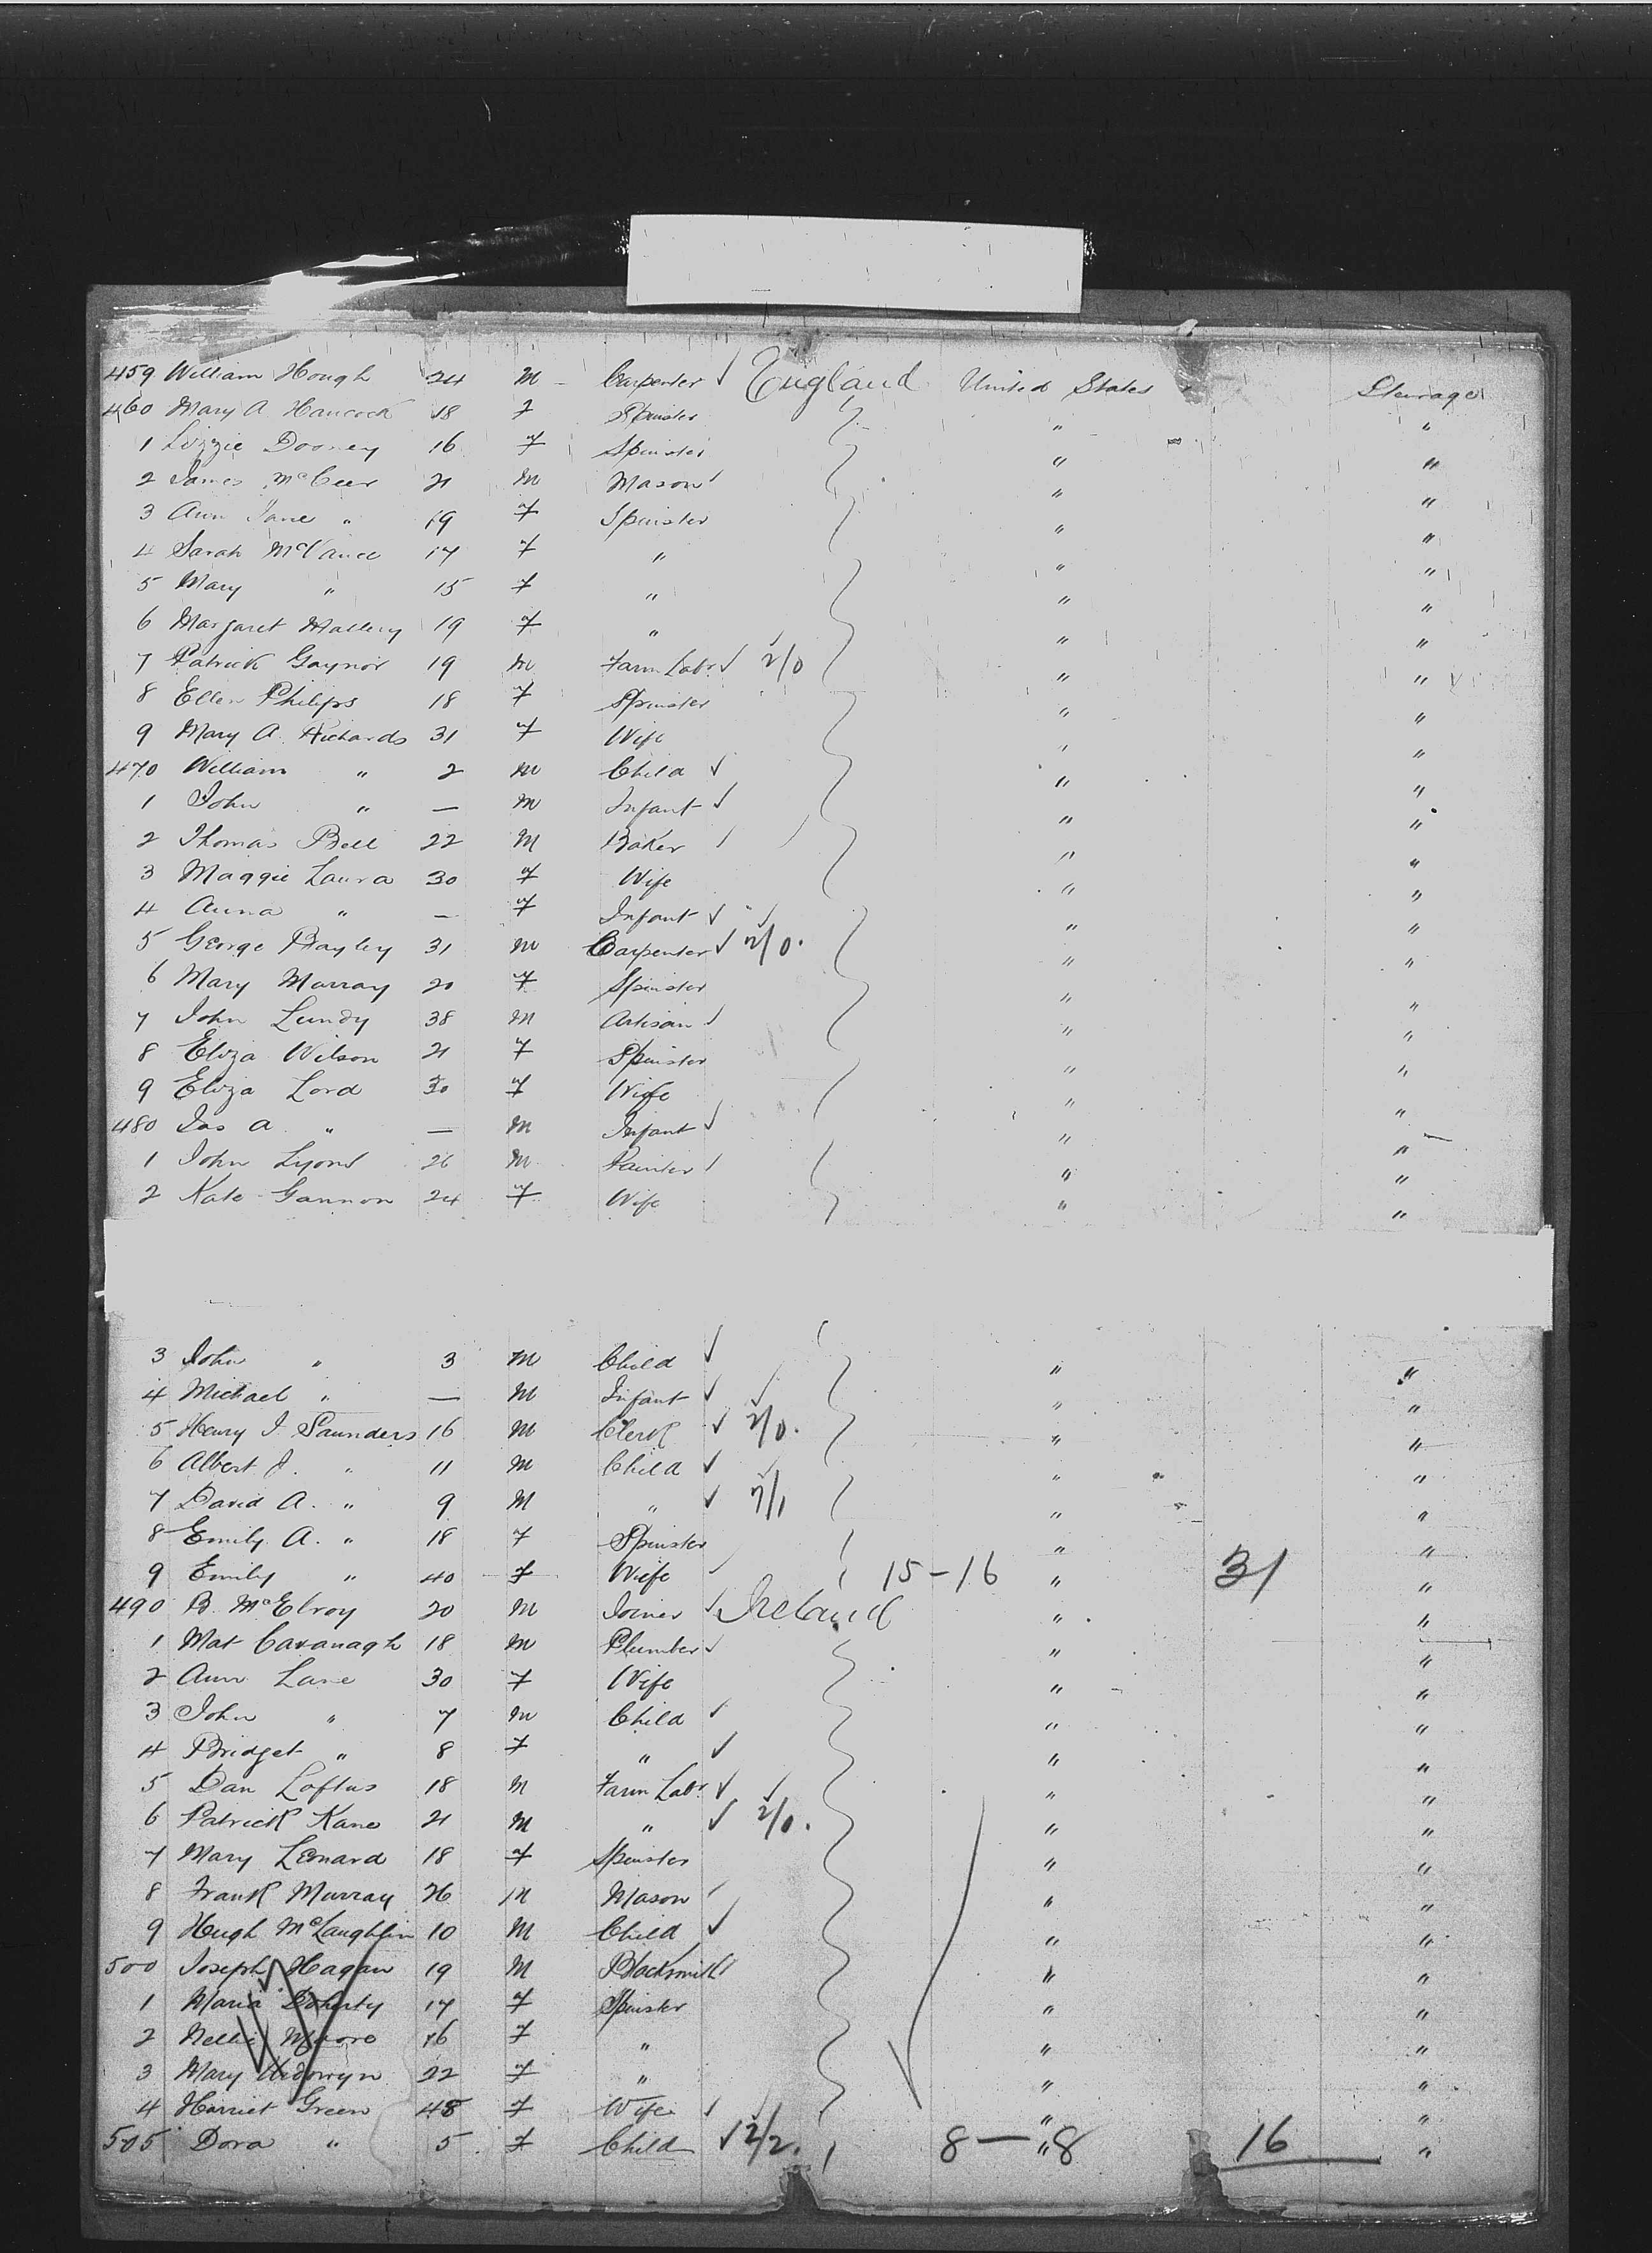 459 William Hough 24 M Carpenter ✓ England United States Steerage
460 Mary A. Hancock 18 F Spinster " "
1 Lizzie Dooney 16 F Spinster " "
2 James McGeer 21 M Mason " "
3 Ann Jane " 19 F Spinster " "
4 Sarah 17 F " " "
5 Mary " 15 F " " "
6 Margaret Mallery 19 F " " "
7 Patrick Gaynor 19 M Farm Labr ✓ 2/0 " "
8 Ellen Philips 18 F Spinster " "
9 Mary A. Richards 31 F Wife " "
470 William " 2 M Child ✓ " "
1 John " — M Infant ✓ " "
2 Thomas Bell 22 M Baker " "
3 Maggie Laura 30 F Wife " "
4 Anna " — F Infant ✓ " "
5 George Bayley 31 M Carpenter ✓ 2/0. " "
6 Mary Murray 20 F Spinster " "
7 John Lundy 38 M Artisan ✓ " "
8 Eliza Wilson 21 F Spinster " "
9 Eliza Lord 30 F Wife " "
480 Jas A. " — M Infant ✓ " "
1 John Lyons 26 M Painter " "
2 Kate Gannon 24 F Wife " "
3 John " 3 M Child ✓ " "
4 Michael " — M Infant ✓ " "
5 Henry J. Saunders 16 M Clerk ✓ 2/0. " "
6 Albert J. " 11 M Child ✓ " "
7 David A. " 9 M " ✓ 2/1 " "
8 Emily A. " 18 F Spinster " "
9 Emily " 40 F Wife 15-16 " 31 "
490 B. McElroy 20 M Joiner ✓ Ireland " "
1 Mat Cavanagh 18 M Plumber ✓ " "
2 Ann Lane 30 F Wife " "
3 John " 7 M Child ✓ " "
4 Bridget " 8 F " ✓ " "
5 Dan Loftus 18 M Farm Labr. ✓ " "
6 Patrick Kane 21 M " ✓ 2/0. " "
7 Mary Lenard 18 F Spinster " "
8 Frank Murray 26 M Mason " "
9 Hugh McLaughlin 10 M Child ✓ " "
500 Joseph Hagan 19 M Blacksmith " "
1 Maria Doherty 17 F Spinster " "
2 Nellie Moore 16 F " " "
3 Mary 22 F " " "
4 Harriet Green 48 F Wife ✓ " "
505 Dora " 5 F Child ✓ 2/2. 8—8 " 16 "